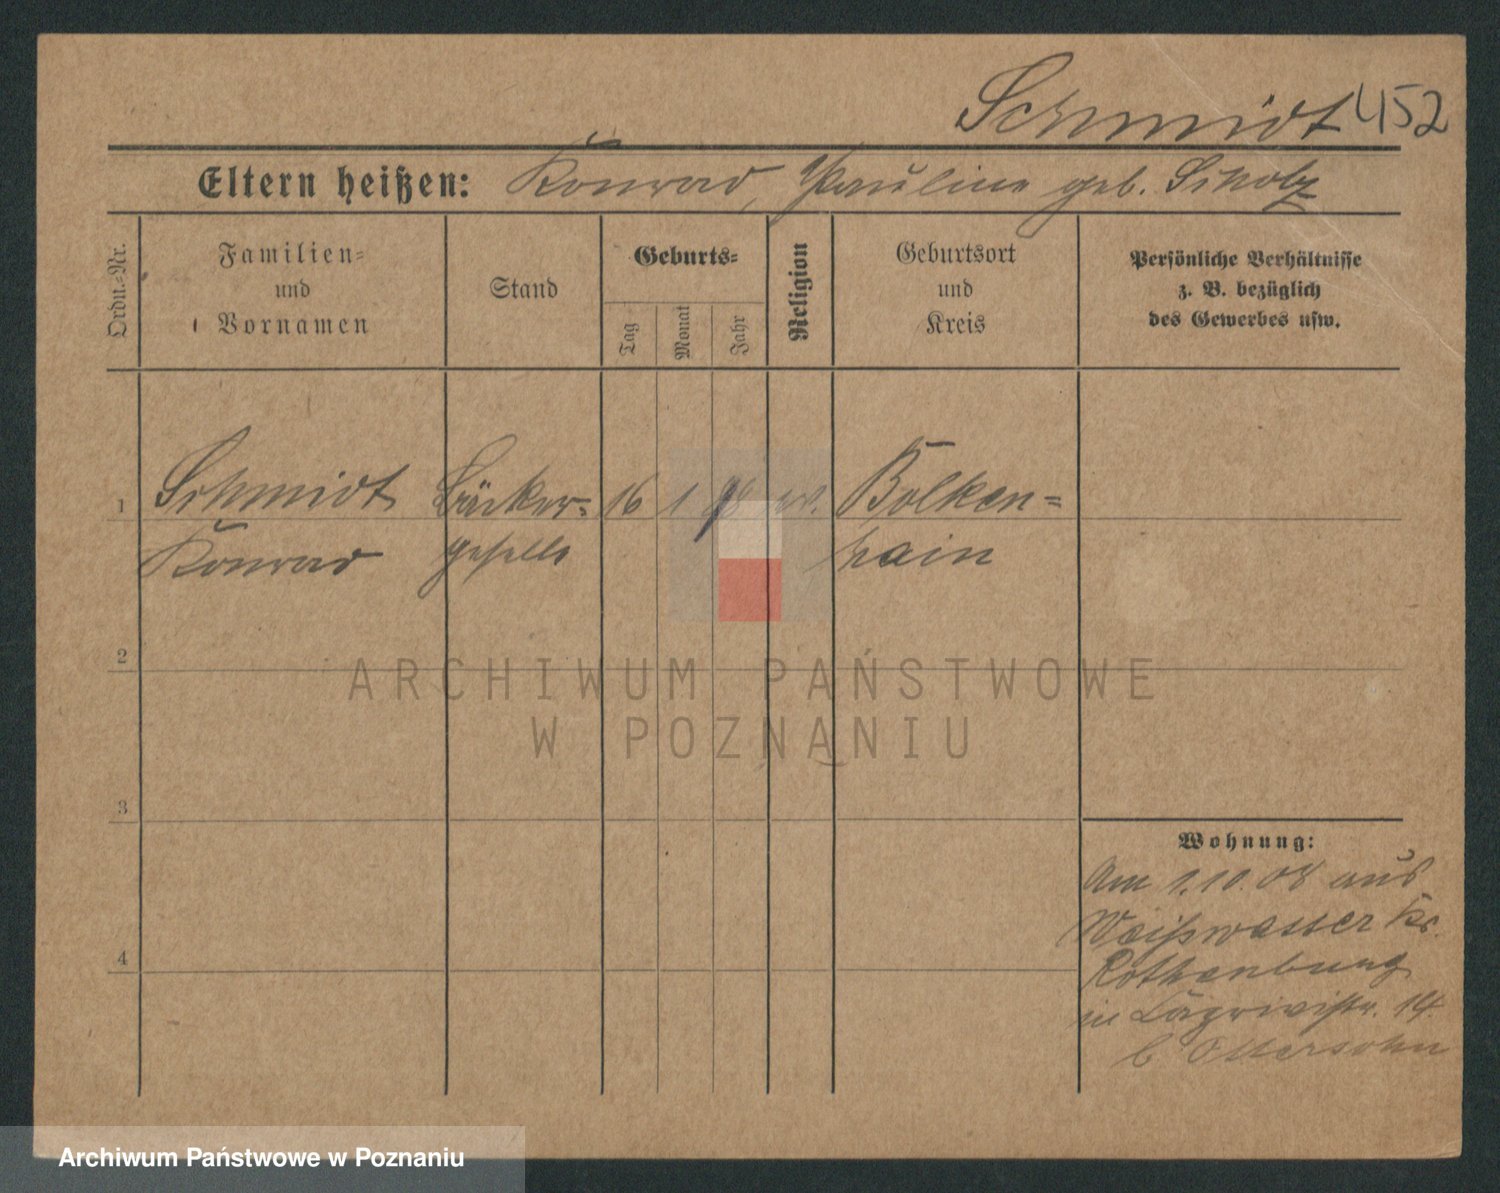 Schmidt 452
Eltern heißen: Konrad, Pauline geb. Scholz
Ordn.-Nr.
Familien-
und
Vornamen
Stand
Geburts-
Tag
Monat
Jahr
Religion
Geburtsort
und
Kreis
Persönliche Verhältnisse
z. B. bezüglich
des Gewerbes usw.
1 Schmidt Bäcker- 16 1 Bolken-
Konrad geselle hain
2
3
4
Wohnung:
Am 1.10.08 aus
Weißwasser Kr.
Rothenburg
in 14
b Ottersohn
ARCHIWUM PAŃSTWOWE
W POZNANIU
Archiwum Państwowe w Poznaniu